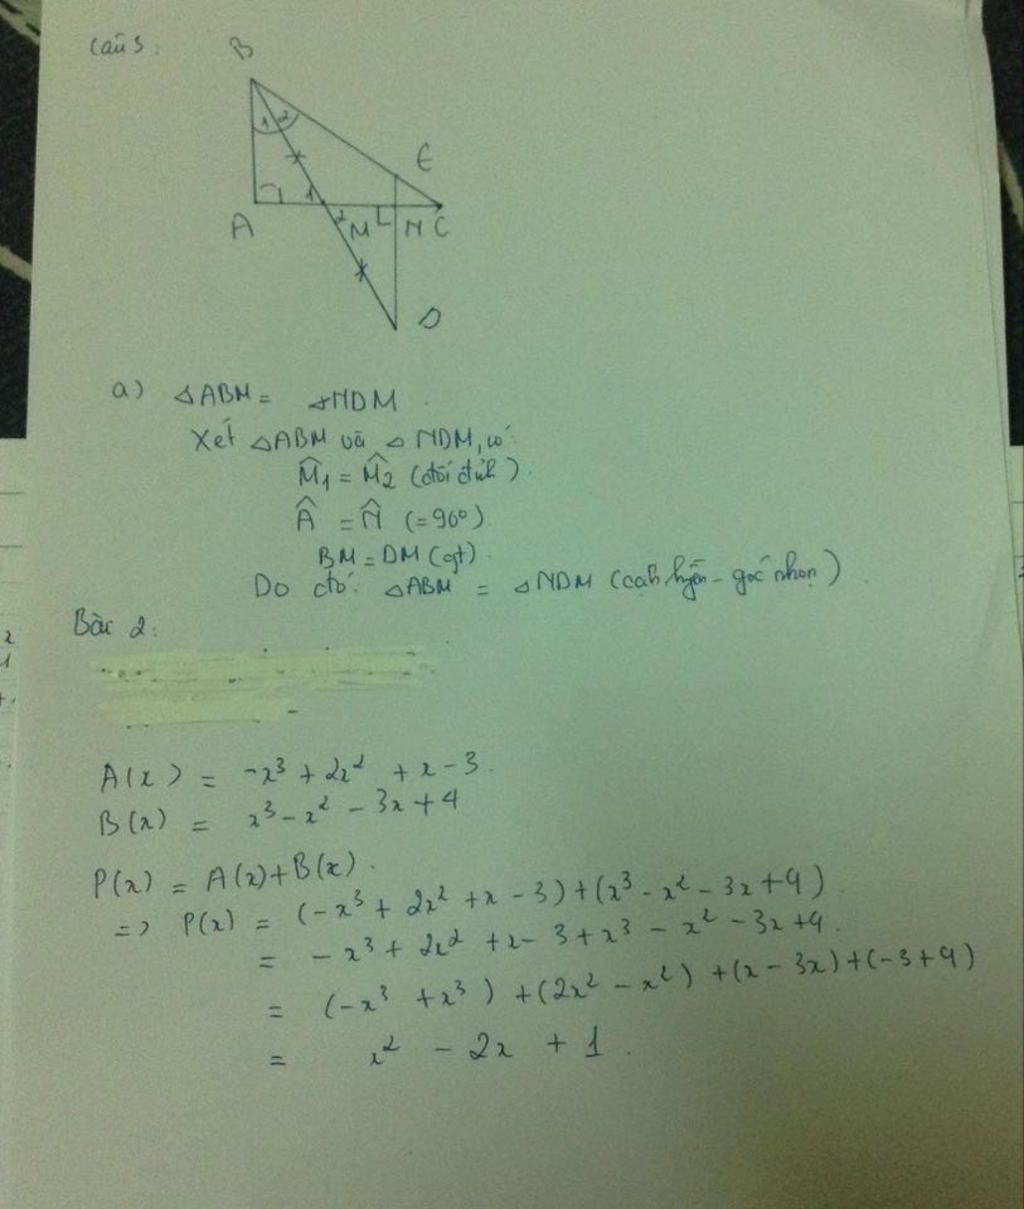 Câu 3:
B
1 2
E
1
A 2 M N C
D
a) △ABM = △NDM.
Xét △ABM và △NDM, có:
M̂₁ = M̂₂ (đối đỉnh).
Â = N̂ (=90°).
BM = DM (gt).
Do đó: △ABM = △NDM (cạnh huyền - góc nhọn)
Bài 2:
A(x) = -x³ + 2x² + x - 3.
B(x) = x³ - x² - 3x + 4
P(x) = A(x) + B(x).
=> P(x) = (-x³ + 2x² + x - 3) + (x³ - x² - 3x + 4).
= -x³ + 2x² + x - 3 + x³ - x² - 3x + 4.
= (-x³ + x³) + (2x² - x²) + (x - 3x) + (-3 + 4)
= x² - 2x + 1.